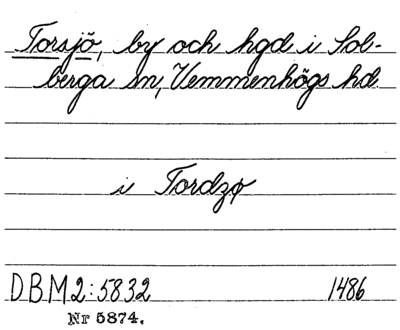 Torsjö, by och hgd i Sol-
berga sn, Vemmenhögs hd
i Tordzø
DBM2:5832 1486
Nr 5874.